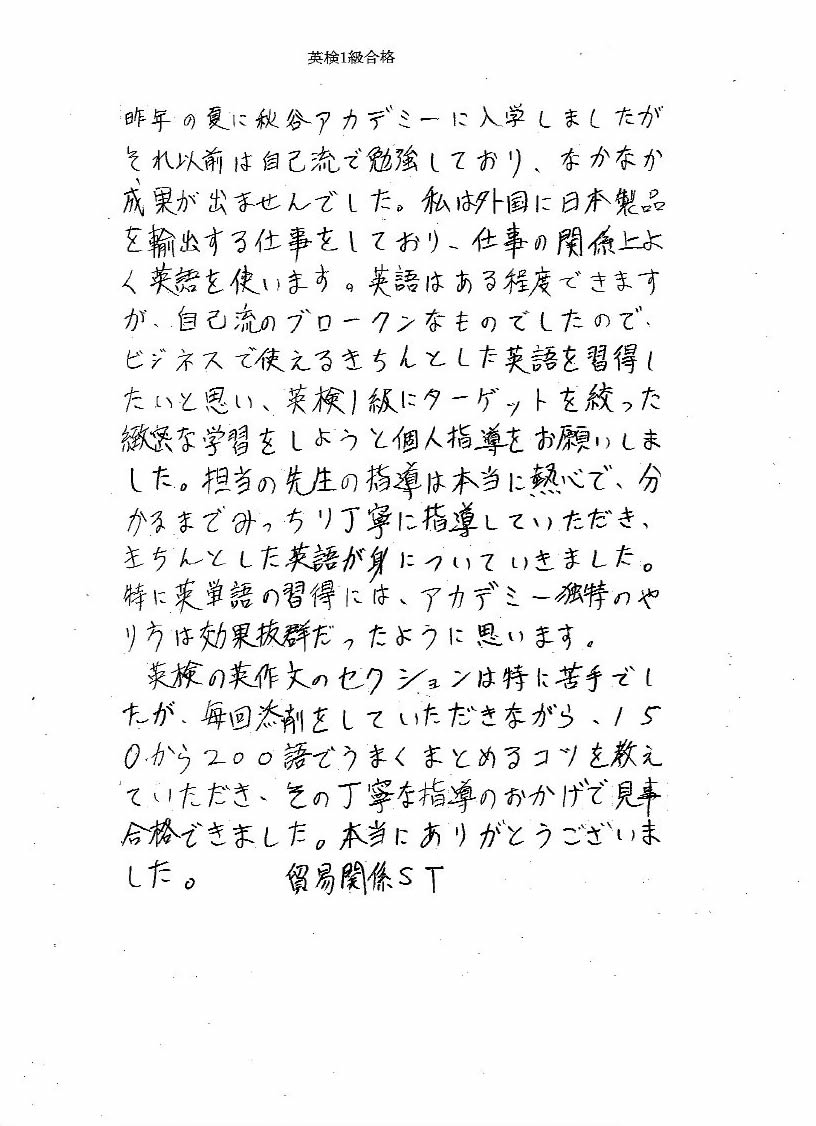 英検1級合格
昨年の夏に秋谷アカデミーに入学しましたが
それ以前は自己流で勉強しており、なかなか
成果が出ませんでした。私は外国に日本製品
を輸出する仕事をしており、仕事の関係上よ
く英語を使います。英語はある程度できます
が、自己流のブロークンなものでしたので、
ビジネスで使えるきちんとした英語を習得し
たいと思い、英検1級にターゲットを絞った
緻密な学習をしようと個人指導をお願いしま
した。担当の先生の指導は本当に熱心で、分
かるまでみっちり丁寧に指導していただき、
きちんとした英語が身についていきました。
特に英単語の習得には、アカデミー独特のや
り方は効果抜群だったように思います。
英検の英作文のセクションは特に苦手でし
たが、毎回添削をしていただきながら、15
0から200語でうまくまとめるコツを教え
ていただき、その丁寧な指導のおかげで見事
合格できました。本当にありがとうございま
した。 貿易関係ST